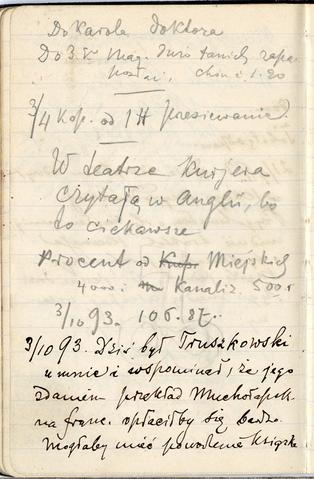 Do Karola doktora
Do 3. K mag. dwo tanich zapa
posłać, 1.20
3/4 Kop. od 1 Przesiewanie.
W teatrze Kurjera
Czytają w Anglii, bo
to ciekawsze
Procent od Kup. Miejskich
4000 i Kanaliz. 500 r
3/10 93. 106.
3/10 93. Dziś był Truszkowski
u mnie i wspominał, że jego
zdaniem przekład Muchołapek
na franc. opłaciłby się bardzo.
Mogłaby mieć powodzenie książka